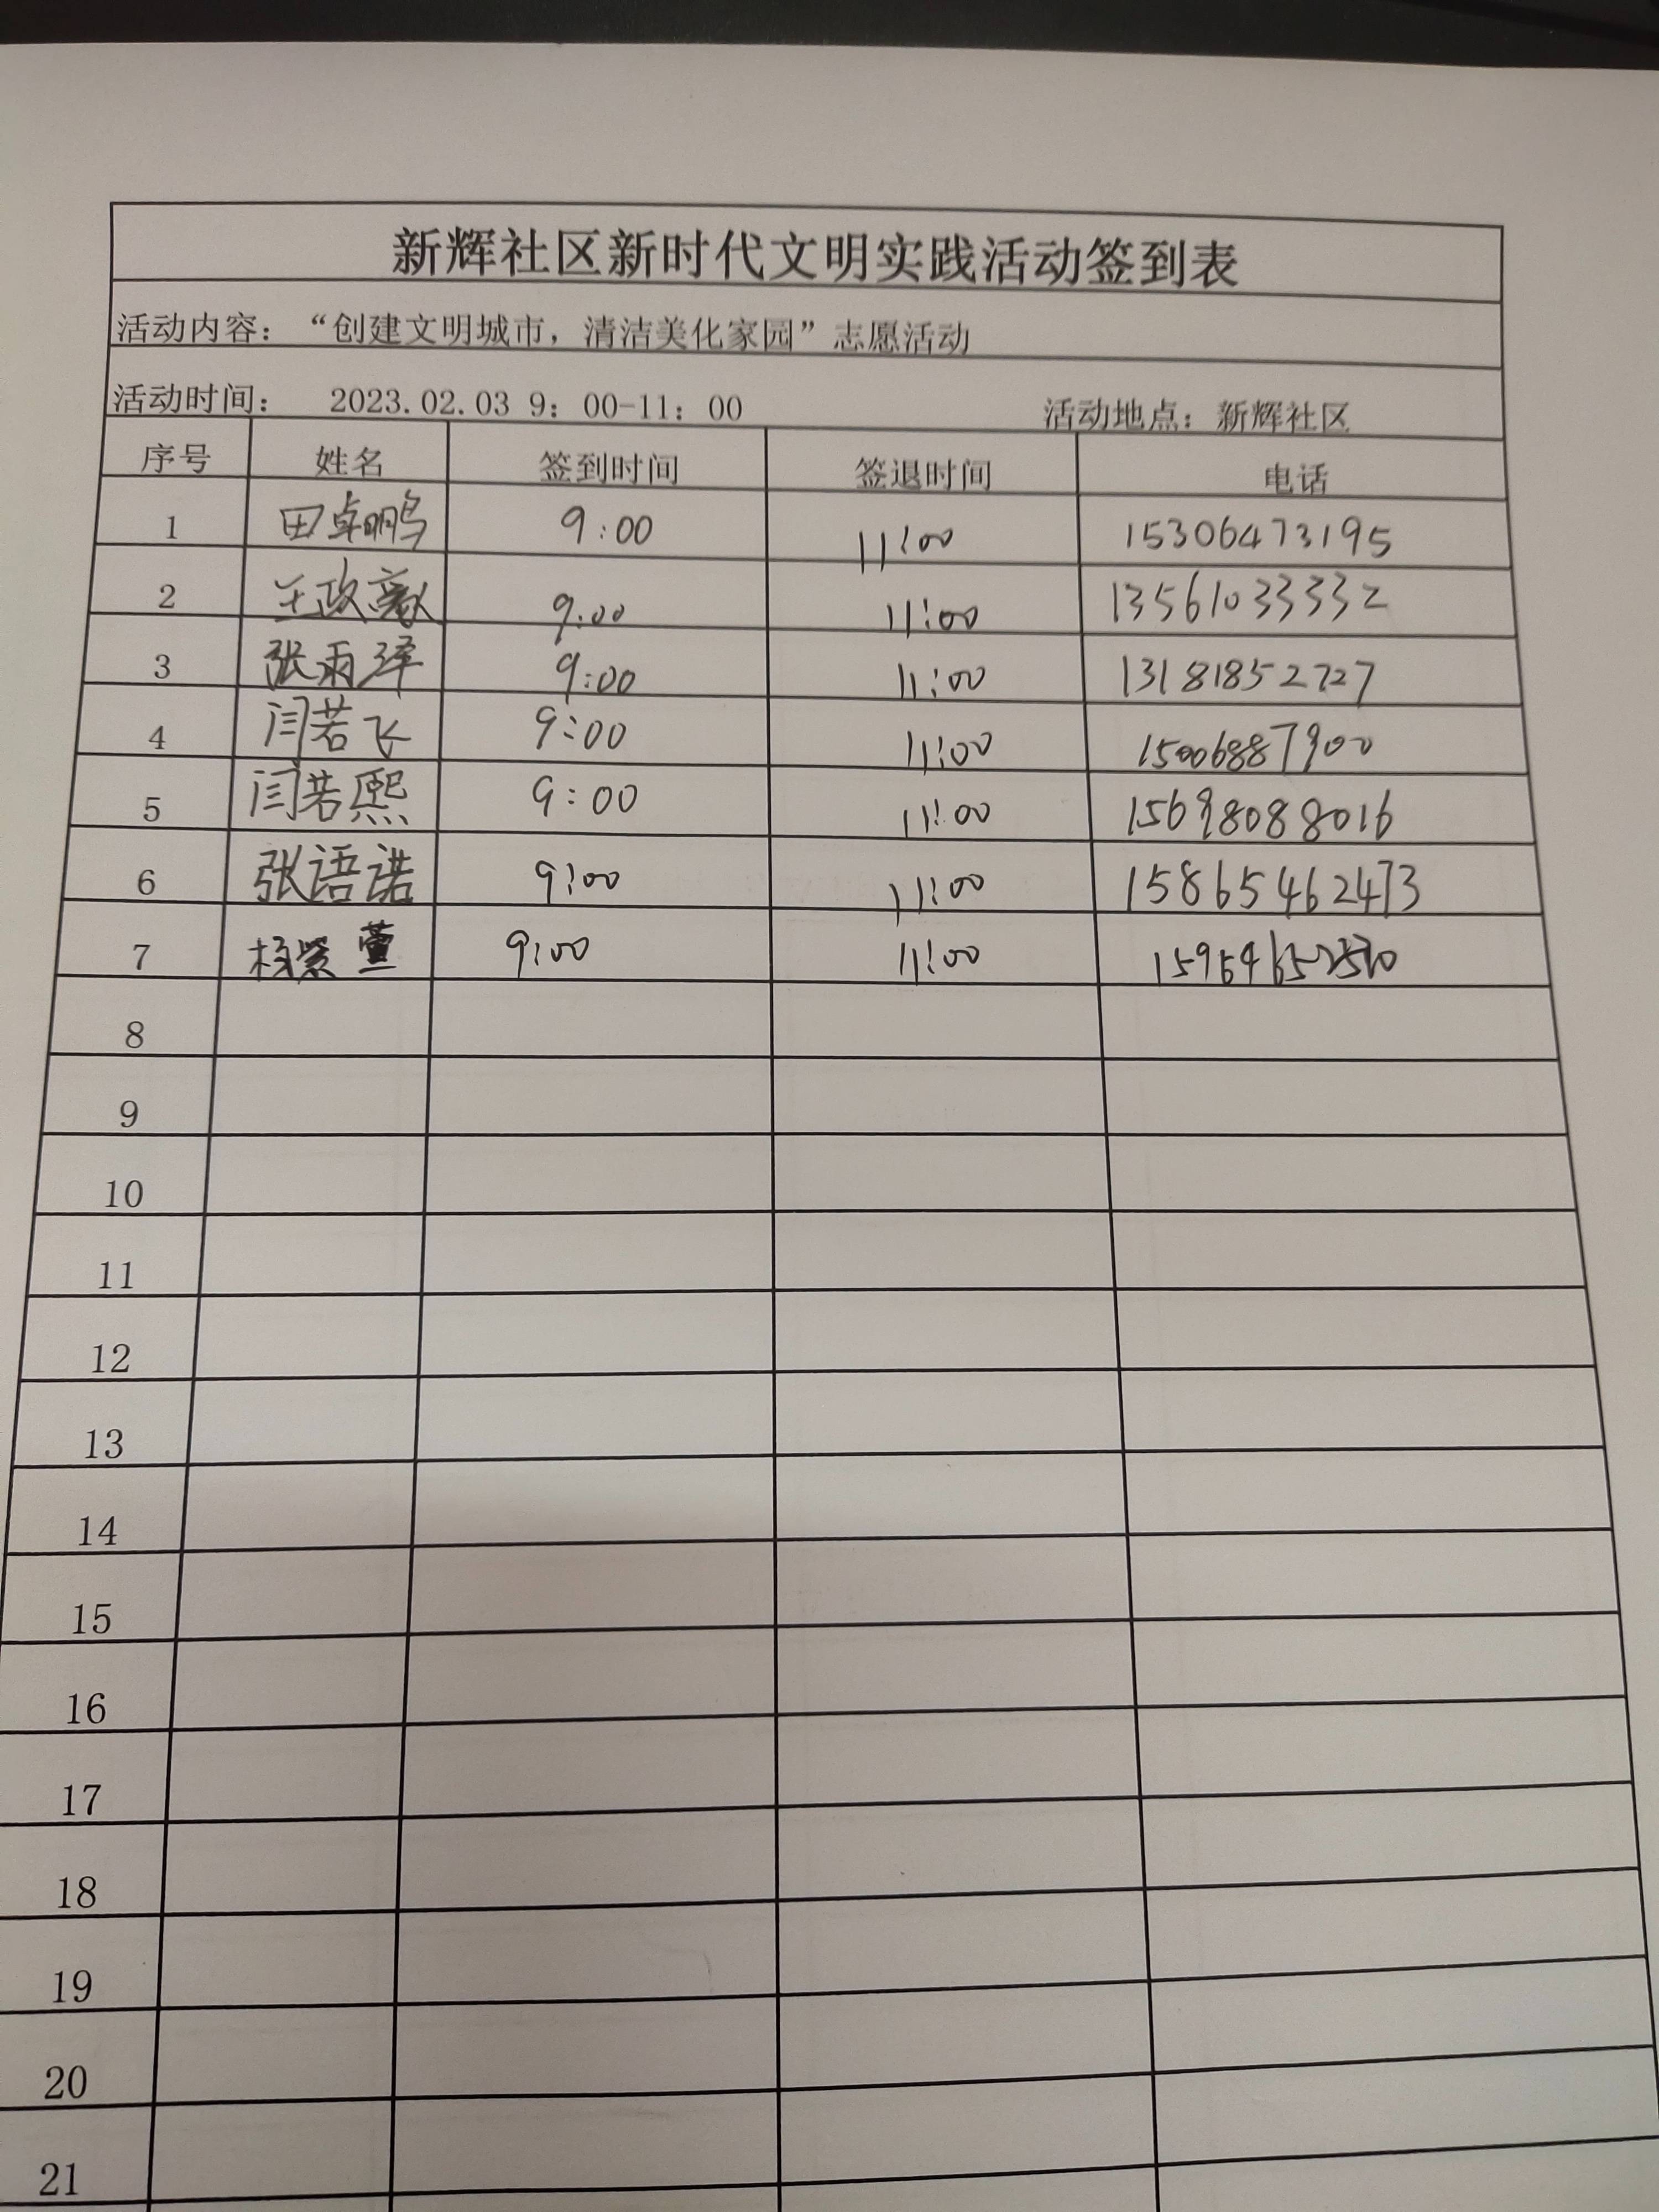 新辉社区新时代文明实践活动签到表
活动内容：“创建文明城市，清洁美化家园”志愿活动
活动时间： 2023.02.03 9：00-11：00 活动地点：新辉社区
序号 姓名 签到时间 签退时间 电话
1 田卓鹏 9:00 11:00 15306473195
2 王政 9:00 11:00 13561033332
3 张雨泽 9:00 11:00 13181852727
4 闫若飞 9:00 11:00 15006887900
5 闫若熙 9:00 11:00 15698088016
6 张语诺 9:00 11:00 15865462473
7 杨紫萱 9:00 11:00
8
9
10
11
12
13
14
15
16
17
18
19
20
21